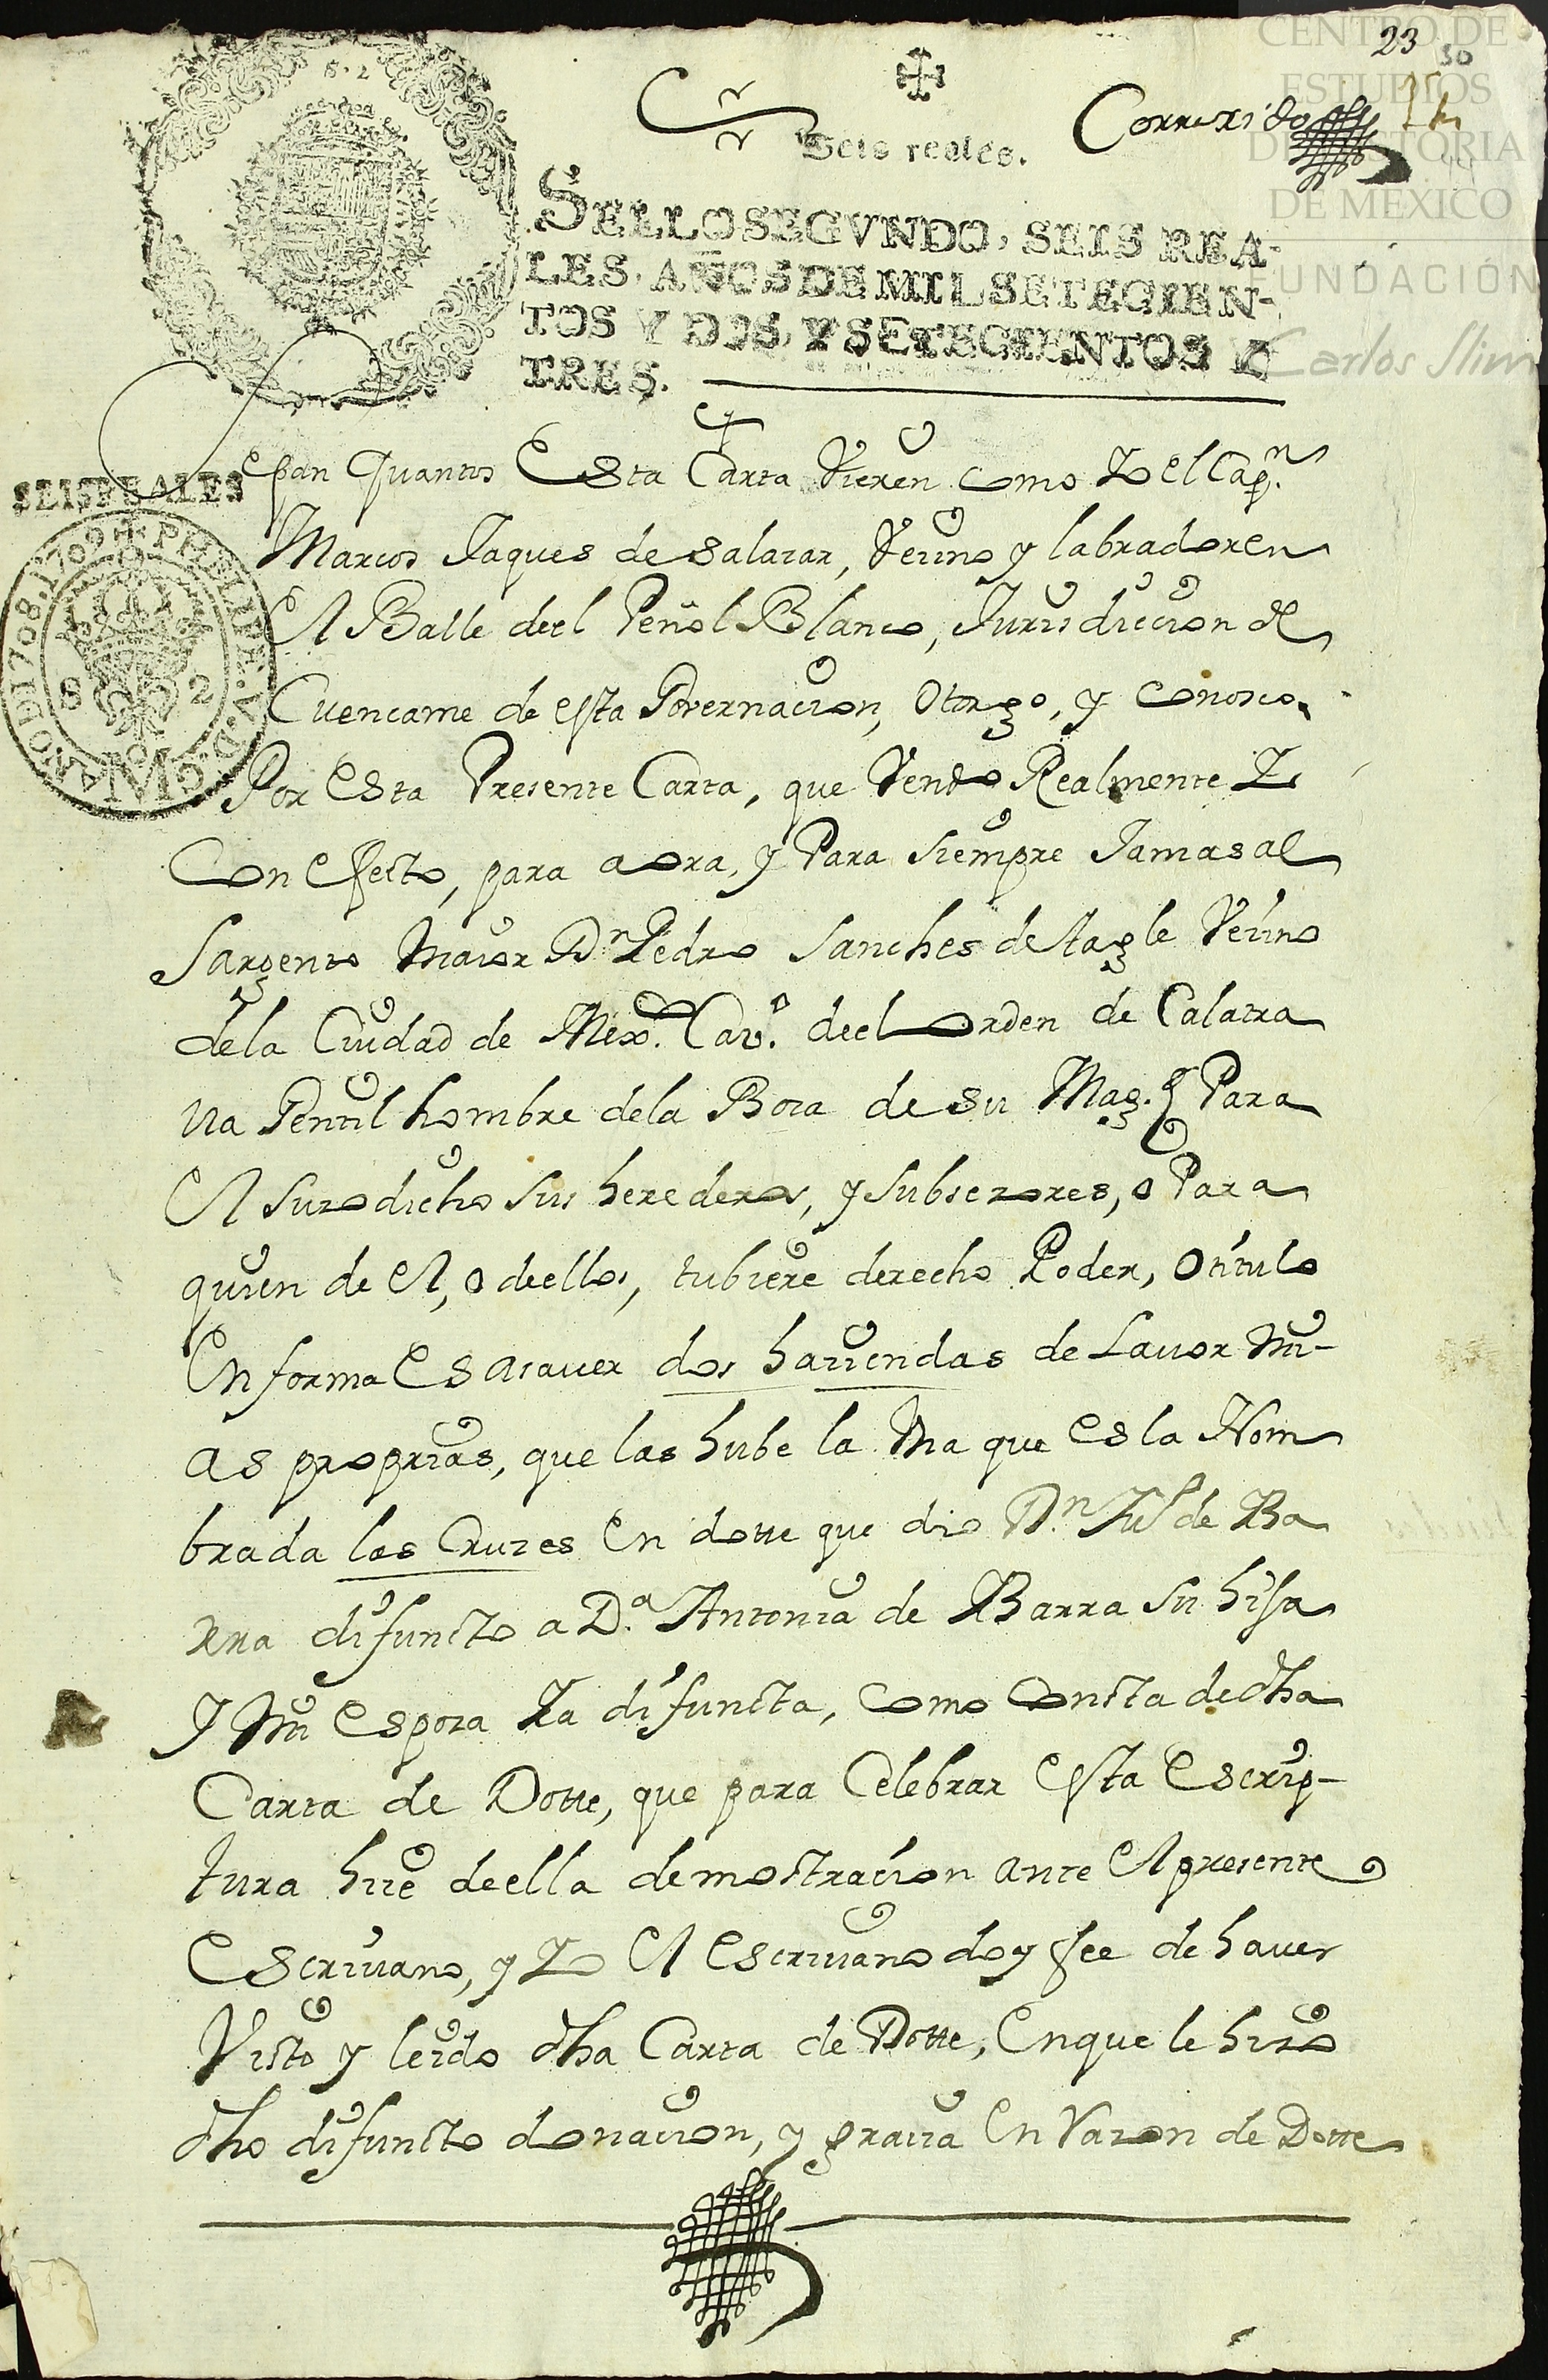 23
30
Correxido
Seis reales.
SELLO SEGVNDO, SEIS REA-
LES, AÑOS DE MIL SETECIEN-
TOS Y DOS, Y SETECIENTOS Y
TRES.
SEIS REALES
AÑO DE 1708. 1709 PHILIPE. V. D. G.
8 2
Sepan quantos Esta Carta Vieren como Yo el Cap.n
Marcos Jaques de salazar, Vezino y labrador en
El Balle deel Peñol Blanco, Jurisdiccion de
Cuencame de esta Governacion, Otorgo, y conosco,
Por Esta Presente Carta, que Vendo Realmente Y
Con efecto, para aora, y Para siempre Jamas al
Sargento Maior D.n Pedro Sanches de tagle Vezino
dela Ciudad de Mex.co Cav.o deel orden de Calatra
va Gentil hombre dela Boca de su Mag.d Para
El suzodicho sus herederos, y subsezores, o Para
quien de El, o deellos, tubiere derecho Poder, O titulo
En forma Es asaver dos haziendas de Lavor Mi-
as proprias, que las hube la Vna que Es la Nom
brada las Cruzes En dotte que dio D.n Ju.o de Ba
rra difuncto a D.a Antonia de Barra su hija
y Mi Espoza Ya difuncta, como consta de dha
Carta de Dotte, que para Celebrar esta Escrip-
tura hize deella demostracion ante El presente
Escrivano, y Yo El Escrivano doy fee de haver
Visto y leido dha Carta de Dotte, En que le hizo
dho difuncto donacion, y gracia En Razon de Dotte
CENTRO DE
ESTUDIOS
DE HISTORIA
DE MÉXICO
FUNDACIÓN
Carlos Slim